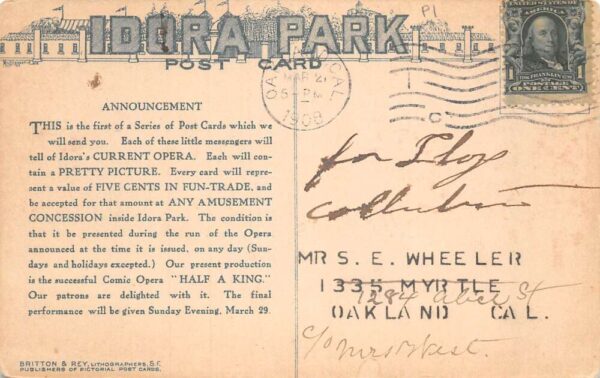 IDORA PARK
POST CARD
P1
OA CAL
MAR 2
5-PM
1908
C
UNITED STATES OF
1 FRANKLIN 1
POSTAGE
ONE CENT
ANNOUNCEMENT
THIS is the first of a Series of Post Cards which we
will send you. Each of these little messengers will
tell of Idora's CURRENT OPERA. Each will con-
tain a PRETTY PICTURE. Every card will repre-
sent a value of FIVE CENTS IN FUN-TRADE, and
be accepted for that amount at ANY AMUSEMENT
CONCESSION inside Idora Park. The condition is
that it be presented during the run of the Opera
announced at the time it is issued, on any day (Sun-
days and holidays excepted.) Our present production
is the successful Comic Opera "HALF A KING."
Our patrons are delighted with it. The final
performance will be given Sunday Evening, March 29.
BRITTON & REY, LITHOGRAPHERS, S.F.
PUBLISHERS OF PICTORIAL POST CARDS.
for Floy
collection
MR S. E. WHEELER
1335 MYRTLE
1284 Alice St
OAKLAND CAL.
c/o Mrs West.